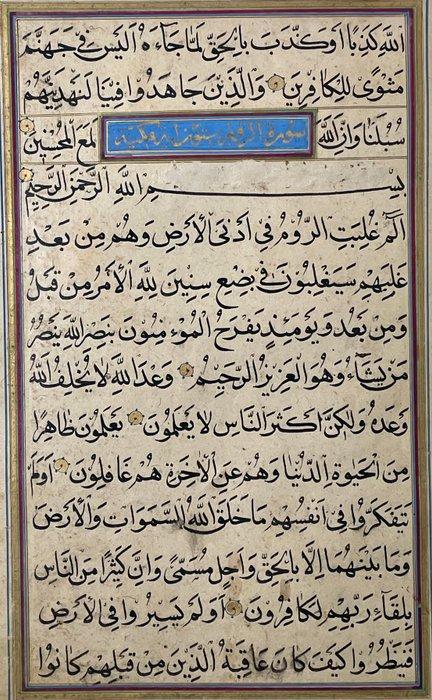 اللَّهِ كَذِبًا أَوْ كَذَّبَ بِالْحَقِّ لَمَّا جَاءَهُ أَلَيْسَ فِي جَهَنَّمَ
مَثْوًى لِلْكَافِرِينَ وَالَّذِينَ جَاهَدُوا فِينَا لَنَهْدِيَنَّهُمْ
سُبُلَنَا وَإِنَّ اللَّهَ لَمَعَ الْمُحْسِنِينَ
سورة الروم ستون آية مكية
بِسْمِ اللَّهِ الرَّحْمَنِ الرَّحِيمِ
الم غُلِبَتِ الرُّومُ فِي أَدْنَى الْأَرْضِ وَهُمْ مِنْ بَعْدِ
غَلَبِهِمْ سَيَغْلِبُونَ فِي بِضْعِ سِنِينَ لِلَّهِ الْأَمْرُ مِنْ قَبْلُ
وَمِنْ بَعْدُ وَيَوْمَئِذٍ يَفْرَحُ الْمُؤْمِنُونَ بِنَصْرِ اللَّهِ يَنْصُرُ
مَنْ يَشَاءُ وَهُوَ الْعَزِيزُ الرَّحِيمُ وَعْدَ اللَّهِ لَا يُخْلِفُ اللَّهُ
وَعْدَهُ وَلَكِنَّ أَكْثَرَ النَّاسِ لَا يَعْلَمُونَ يَعْلَمُونَ ظَاهِرًا
مِنَ الْحَيَوةِ الدُّنْيَا وَهُمْ عَنِ الْآخِرَةِ هُمْ غَافِلُونَ أَوَلَمْ
يَتَفَكَّرُوا فِي أَنْفُسِهِمْ مَا خَلَقَ اللَّهُ السَّمَوَاتِ وَالْأَرْضَ
وَمَا بَيْنَهُمَا إِلَّا بِالْحَقِّ وَأَجَلٍ مُسَمًّى وَإِنَّ كَثِيرًا مِنَ النَّاسِ
بِلِقَاءِ رَبِّهِمْ لَكَافِرُونَ أَوَلَمْ يَسِيرُوا فِي الْأَرْضِ
فَيَنْظُرُوا كَيْفَ كَانَ عَاقِبَةُ الَّذِينَ مِنْ قَبْلِهِمْ كَانُوا